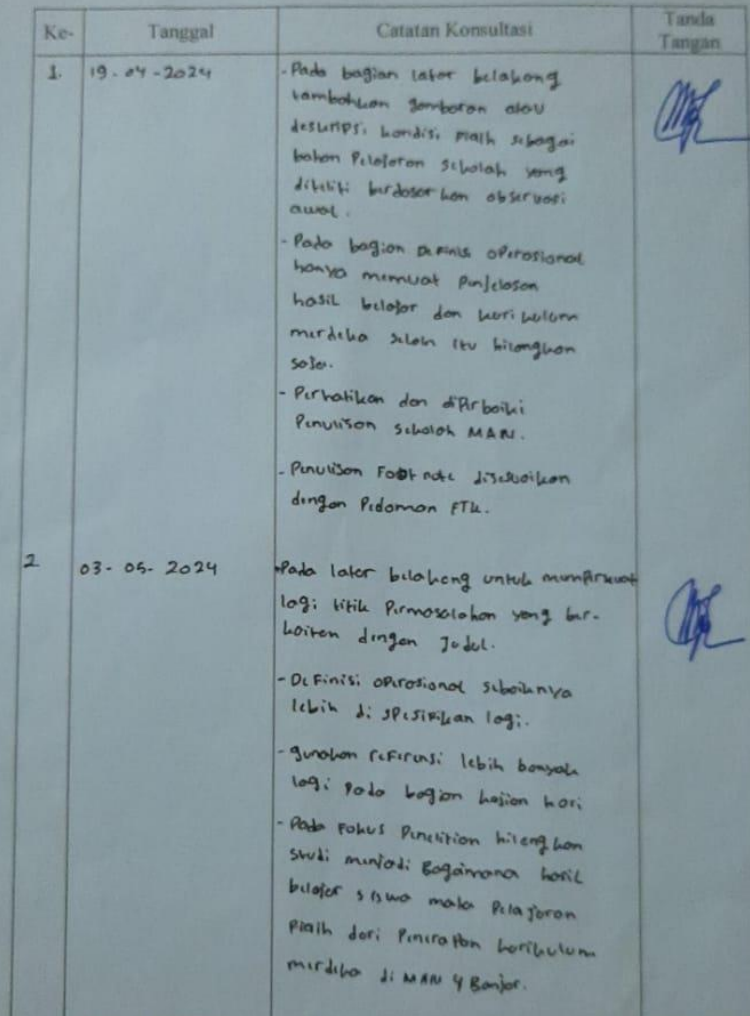 Ke- Tanggal Catatan Konsultasi Tanda Tangan
1. 19-04-2024 - Pada bagian latar belakang
tambahkan gambaran atau
deskripsi kondisi fikih sebagai
bahan Pelajaran sekolah yang
diteliti berdasarkan observasi
awal.
- Pada bagian Definisi operasional
hanya memuat Penjelasan
hasil belajar dan kurikulum
merdeka selain itu hilangkan
saja.
- Perhatikan dan diPerbaiki
Penulisan sekolah MAN.
- Penulisan Footnote disesuaikan
dengan Pedoman FTK.
2 03-05-2024 - Pada latar belakang untuk memperkuat
lagi titik Permasalahan yang ber-
kaitan dengan Judul.
- Definisi operasional sebaiknya
lebih di spesifikan lagi.
- gunakan referensi lebih banyak
lagi pada bagian kajian
- Pada Fokus Penelitian hilangkan
studi menjadi Bagaimana hasil
belajar siswa mata Pelajaran
Fikih dari Penerapan kurikulum
merdeka di MAN 4 Banjar.